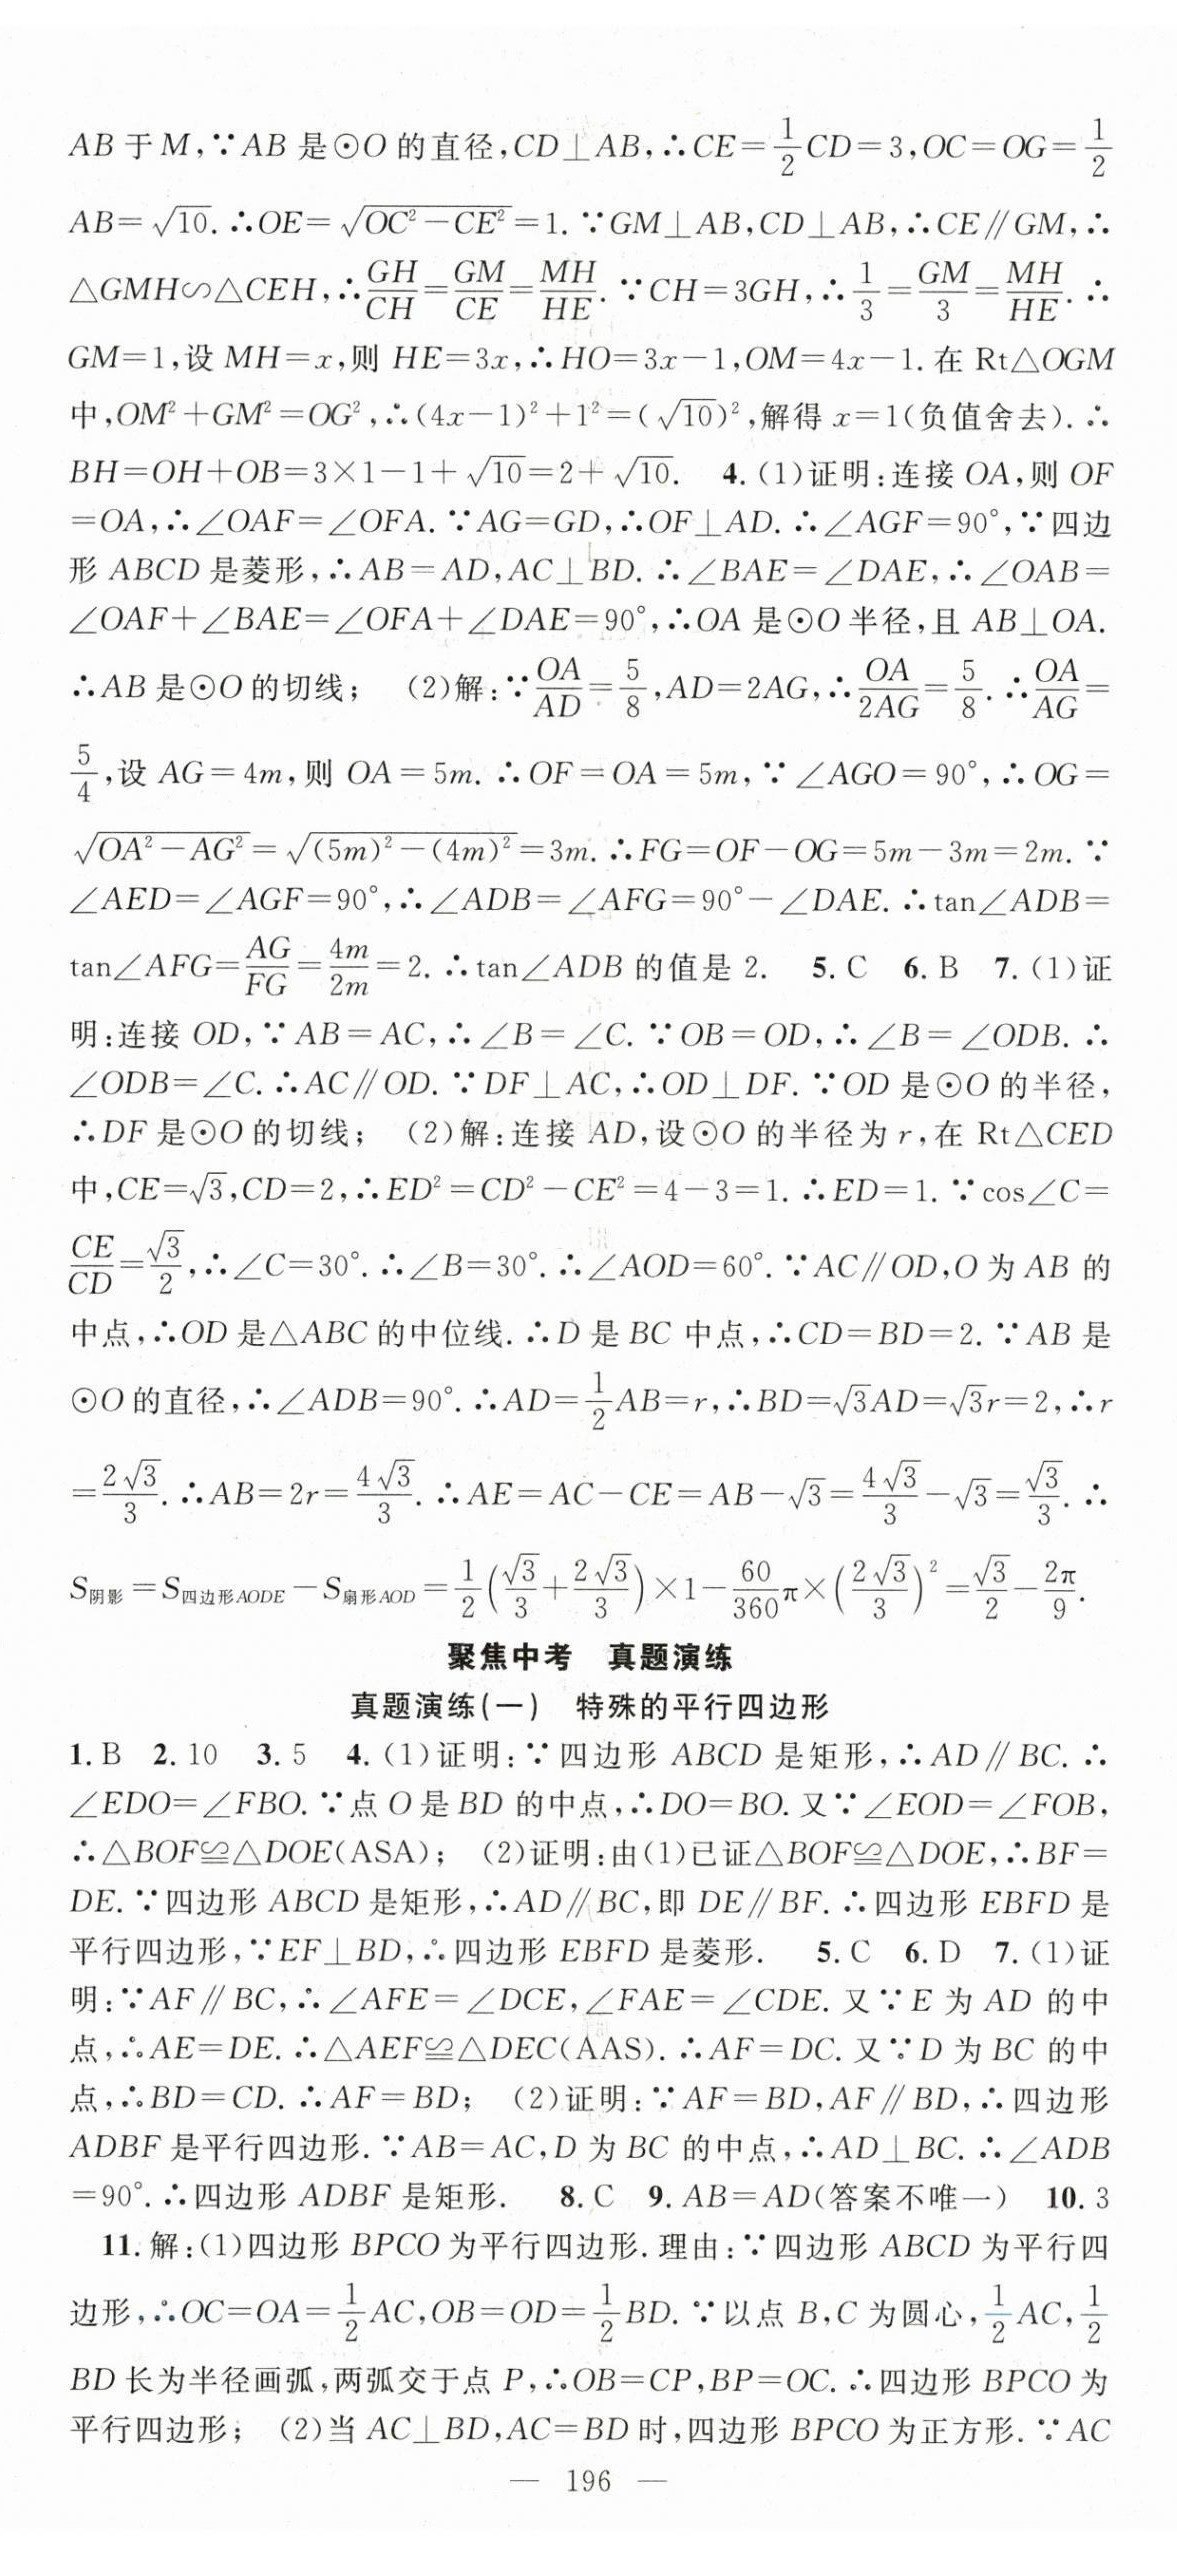 AB于M,∵AB是⊙O的直径,CD⊥AB,∴CE=1/2CD=3,OC=OG=1/2
AB=√10.∴OE=√(OC²-CE²)=1.∵GM⊥AB,CD⊥AB,∴CE∥GM,∴
△GMH∽△CEH,∴GH/CH=GM/CE=MH/HE.∵CH=3GH,∴1/3=GM/3=MH/HE.∴
GM=1,设MH=x,则HE=3x,∴HO=3x-1,OM=4x-1.在Rt△OGM
中,OM²+GM²=OG²,∴(4x-1)²+1²=(√10)²,解得x=1(负值舍去).∴
BH=OH+OB=3×1-1+√10=2+√10. 4.(1)证明:连接OA,则OF
=OA,∴∠OAF=∠OFA.∵AG=GD,∴OF⊥AD.∴∠AGF=90°,∵四边
形ABCD是菱形,∴AB=AD,AC⊥BD.∴∠BAE=∠DAE,∴∠OAB=
∠OAF+∠BAE=∠OFA+∠DAE=90°,∴OA是⊙O半径,且AB⊥OA.
∴AB是⊙O的切线; (2)解:∵OA/AD=5/8,AD=2AG,∴OA/2AG=5/8.∴OA/AG=
5/4,设AG=4m,则OA=5m.∴OF=OA=5m,∵∠AGO=90°,∴OG=
√(OA²-AG²)=√((5m)²-(4m)²)=3m.∴FG=OF-OG=5m-3m=2m.∵
∠AED=∠AGF=90°,∴∠ADB=∠AFG=90°-∠DAE.∴tan∠ADB=
tan∠AFG=AG/FG=4m/2m=2.∴tan∠ADB的值是2. 5.C 6.B 7.(1)证
明:连接OD,∵AB=AC,∴∠B=∠C.∵OB=OD,∴∠B=∠ODB.∴
∠ODB=∠C.∴AC∥OD.∵DF⊥AC,∴OD⊥DF.∵OD是⊙O的半径,
∴DF是⊙O的切线; (2)解:连接AD,设⊙O的半径为r,在Rt△CED
中,CE=√3,CD=2,∴ED²=CD²-CE²=4-3=1.∴ED=1.∵cos∠C=
CE/CD=√3/2,∴∠C=30°.∴∠B=30°.∴∠AOD=60°.∵AC∥OD,O为AB的
中点,∴OD是△ABC的中位线.∴D是BC中点,∴CD=BD=2.∵AB是
⊙O的直径,∴∠ADB=90°.∴AD=1/2AB=r,∴BD=√3AD=√3r=2,∴r
=2√3/3.∴AB=2r=4√3/3.∴AE=AC-CE=AB-√3=4√3/3-√3=√3/3.∴
S阴影=S四边形AODE-S扇形AOD=1/2(√3/3+2√3/3)×1-60/360π×(2√3/3)²=√3/2-2π/9.
聚焦中考 真题演练
真题演练(一) 特殊的平行四边形
1.B 2.10 3.5 4.(1)证明:∵四边形ABCD是矩形,∴AD∥BC.∴
∠EDO=∠FBO.∵点O是BD的中点,∴DO=BO.又∵∠EOD=∠FOB,
∴△BOF≌△DOE(ASA); (2)证明:由(1)已证△BOF≌△DOE,∴BF=
DE.∵四边形ABCD是矩形,∴AD∥BC,即DE∥BF.∴四边形EBFD是
平行四边形,∵EF⊥BD,∴四边形EBFD是菱形. 5.C 6.D 7.(1)证
明:∵AF∥BC,∴∠AFE=∠DCE,∠FAE=∠CDE.又∵E为AD的中
点,∴AE=DE.∴△AEF≌△DEC(AAS).∴AF=DC.又∵D为BC的中
点,∴BD=CD.∴AF=BD; (2)证明:∵AF=BD,AF∥BD,∴四边形
ADBF是平行四边形.∵AB=AC,D为BC的中点,∴AD⊥BC.∴∠ADB
=90°.∴四边形ADBF是矩形. 8.C 9.AB=AD(答案不唯一) 10.3
11.解:(1)四边形BPCO为平行四边形.理由:∵四边形ABCD为平行四
边形,∴OC=OA=1/2AC,OB=OD=1/2BD.∵以点B,C为圆心,1/2AC,1/2
BD长为半径画弧,两弧交于点P,∴OB=CP,BP=OC.∴四边形BPCO为
平行四边形; (2)当AC⊥BD,AC=BD时,四边形BPCO为正方形.∵AC
— 196 —